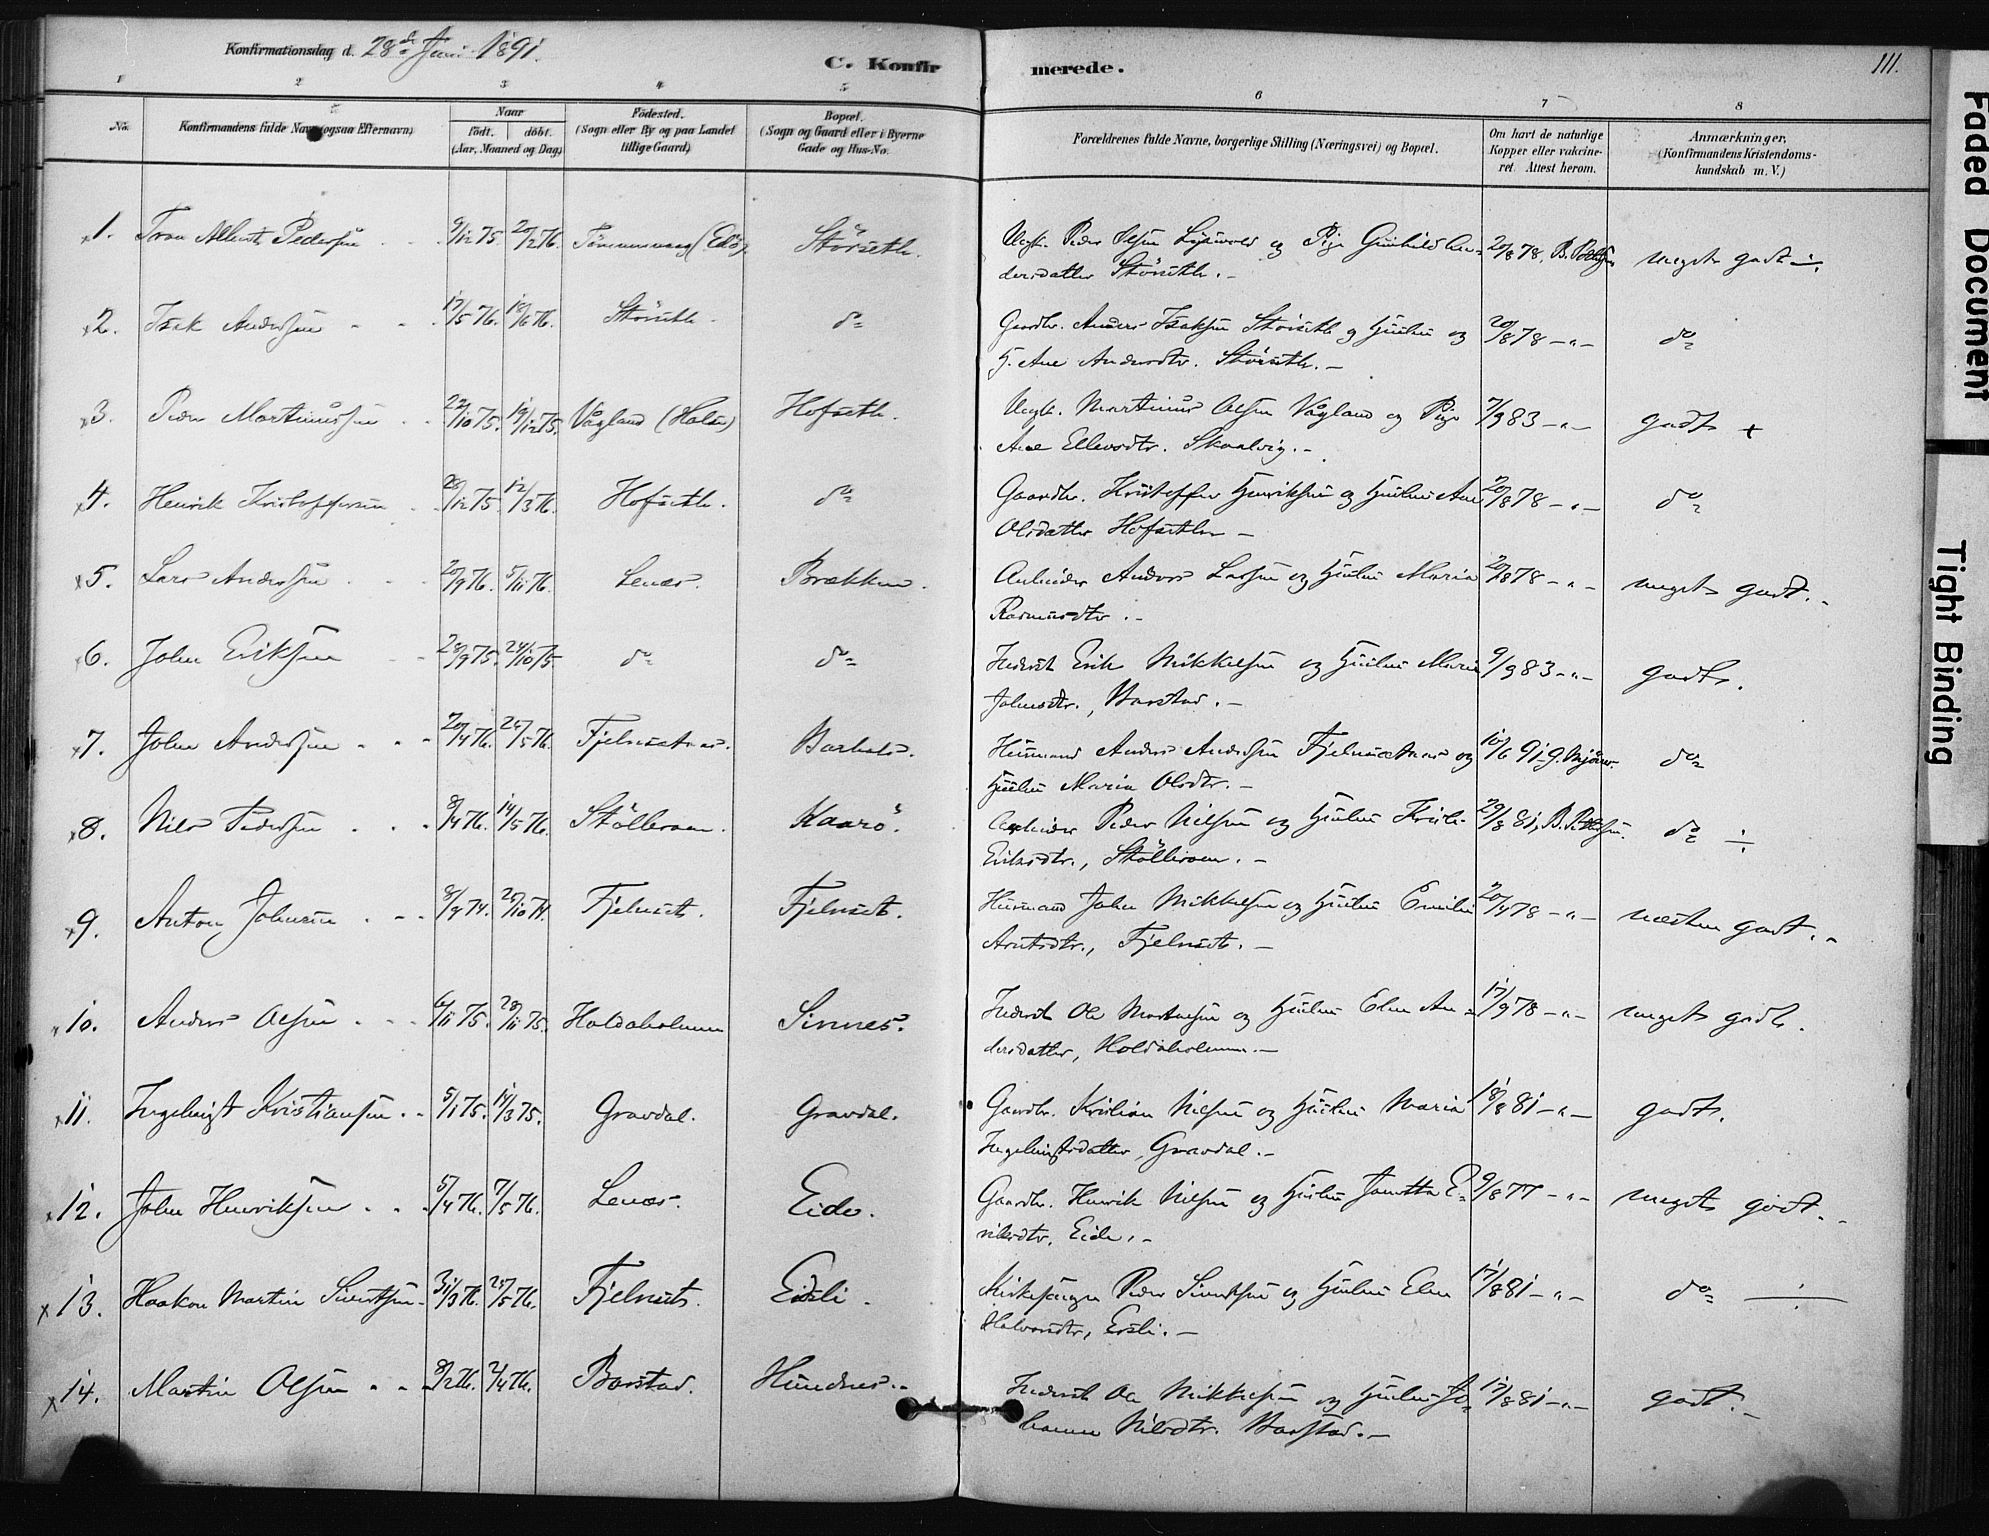 Konfirmationsdag d. 28de Juni 1891.
C. Konfirmerede.
111.
1 2 3 4 5 6 7 8
No.
Konfirmandens fulde Navn (ogsaa Efternavn)
Naar
födt. döbt.
(Aar, Maaned og Dag)
Födested.
(Sogn eller By og paa Landet
tillige Gaard)
Bopæl.
(Sogn og Gaard eller i Byerne
Gade og Hus-No.
Forældrenes fulde Navne, borgerlige Stilling (Næringsvei) og Bopæl.
Om havt de naturlige
Kopper eller vakcine-
ret. Attest herom.
Anmærkninger,
(Konfirmandens Kristendoms-
kundskab m. V.)
x1. Albert Pedersen 9/12 75. 20/2 76. (Edö) Störseth. Peder Olsen og Pige Gunhild An=
dersdatter Störseth. 20/8 78. meget godt ÷
x2. Isak Andersen 17/5 76. 18/6 76. Störseth do Gaardbr. Anders Isaksen Störseth og Hustru
Ane Andersdtr. Störseth. 20/8 78 -"- do
x3. Peder Martinussen 22/10 75. 19/12 75. Vågland (Halse) Hofseth. Martinus Olsen Vågland og Pige
Ane Ellevsdtr. Skaalvig. 7/9 83 -"- godt +
x4. Henrik Kristoffersen 28/12 75. 12/3 76. Hofseth. do Gaardbr. Kristoffer Henriksen og Hustru Ane
Olsdatter Hofseth 20/8 78 -"- do
x5. Lars Andersen 20/9 76. 5/11 76. Lenæs. Brækken. Arbeider Anders Larsen og Hustru Maria
Rasmusdtr. 20/8 78 -"- meget godt.
6. John Eriksen 28/9 75. 24/10 75. do do Inderst Erik Mikkelsen og Hustru Maria
Johnsdtr., Barstad. 9/9 83 -"- godt.
x7. John Andersen 20/4 76. 26/5 76. Fjelnesetnes. Barhals. Husmand Anders Andersen og
Hustru Maria Olsdtr. 10/6 91 do
x8. Nils Pedersen 8/4 76. 14/5 76. Kaarö. Arbeider Peder Nilsen og Hustru
Eriksdtr., 29/8 81, do ÷
x9. Anton Johnsen 8/9 74. 25/10 74. Fjelnset. Fjelnset. Husmand John Mikkelsen og Hustru
Arntsdtr., Fjelnset. 20/4 78 -"- næsten godt.
10. Anders Olsen 6/11 75. 28/11 75. Holdaholmen Sinnes. Inderst Ole og Hustru Elen An=
dersdatter, Holdaholmen. 17/9 78 -"- meget godt.
x11. Ingebrigt Kristiansen 5/1 75. 14/3 75. Gravdal. Gravdal. Gaardbr. Kristian Nilsen og Hustru Maria
Ingebrigtsdatter, Gravdal. 18/8 81 -"- godt.
x12. John Henriksen 5/4 76. 7/5 76. Lenæs. Eide. Gaardbr. Henrik Nilsen og Hustru E=
riksdtr. Eide. 9/8 77 -"- meget godt.
x13. Haakon Martin Sivertsen 31/3 76. 25/5 76. Fjelnset. Eidsli. Kirkesanger Peder Sivertsen og Hustru Elen
Halvorsdtr, Eidsli. 17/8 81 -"- do ÷
x14. Martin Olsen 8/2 76. 2/4 76. Barstad. Hundnes. Inderst Ole Mikkelsen og Hustru Jo=
hanne Nilsdtr. Barstad. 17/8 81 -"- godt.
Faded Document
Tight Binding